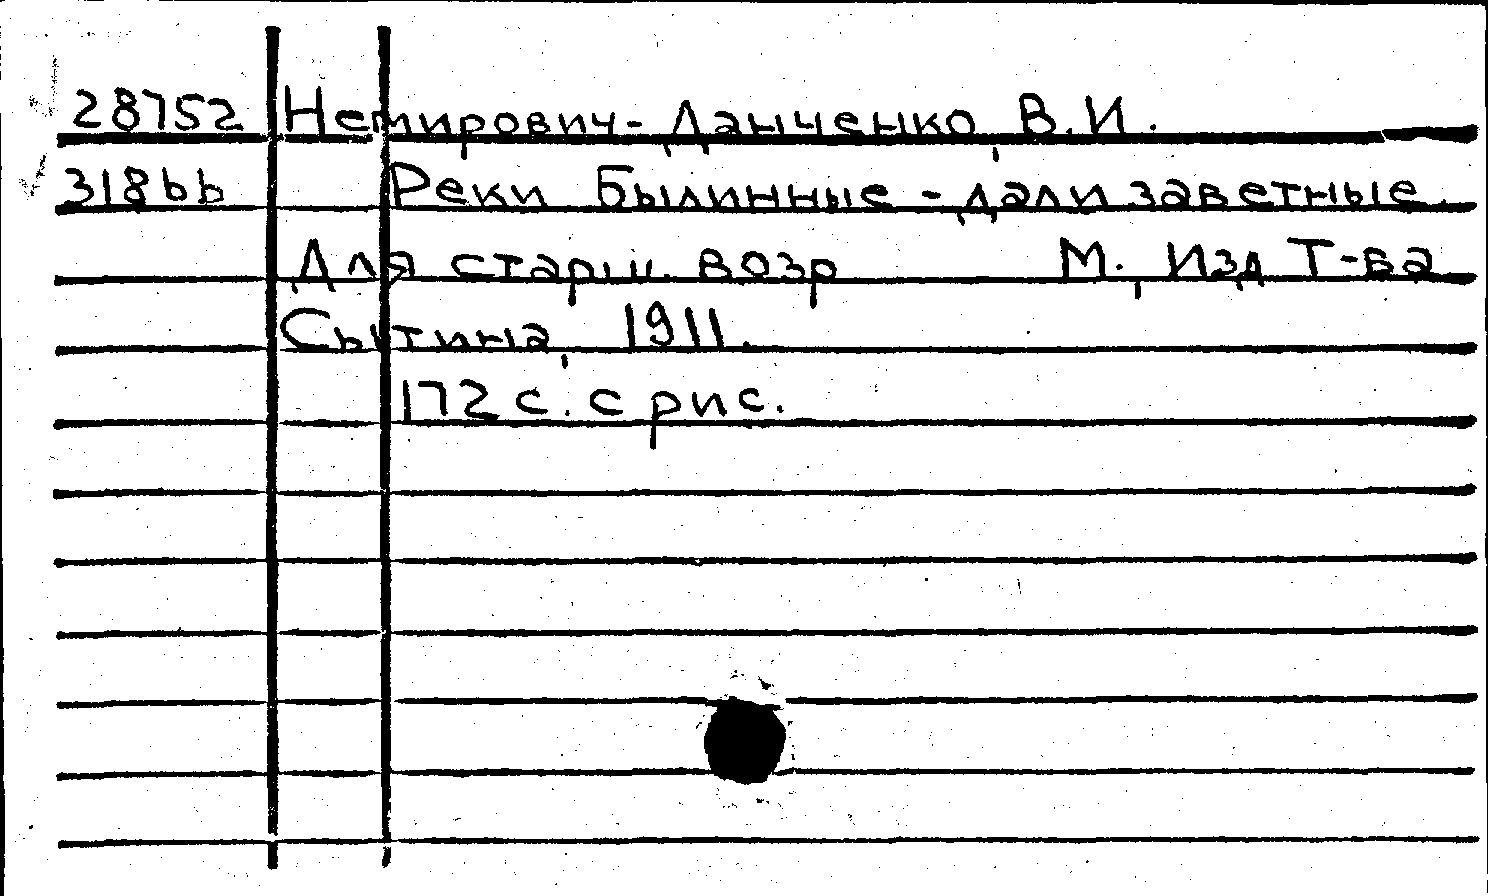 28752 Немирович-Данченко, В.И.
31866 Реки Былинные - дали заветные.
Для старш. возр М., Изд Т-ва
Сытина, 1911.
172 с. с рис.